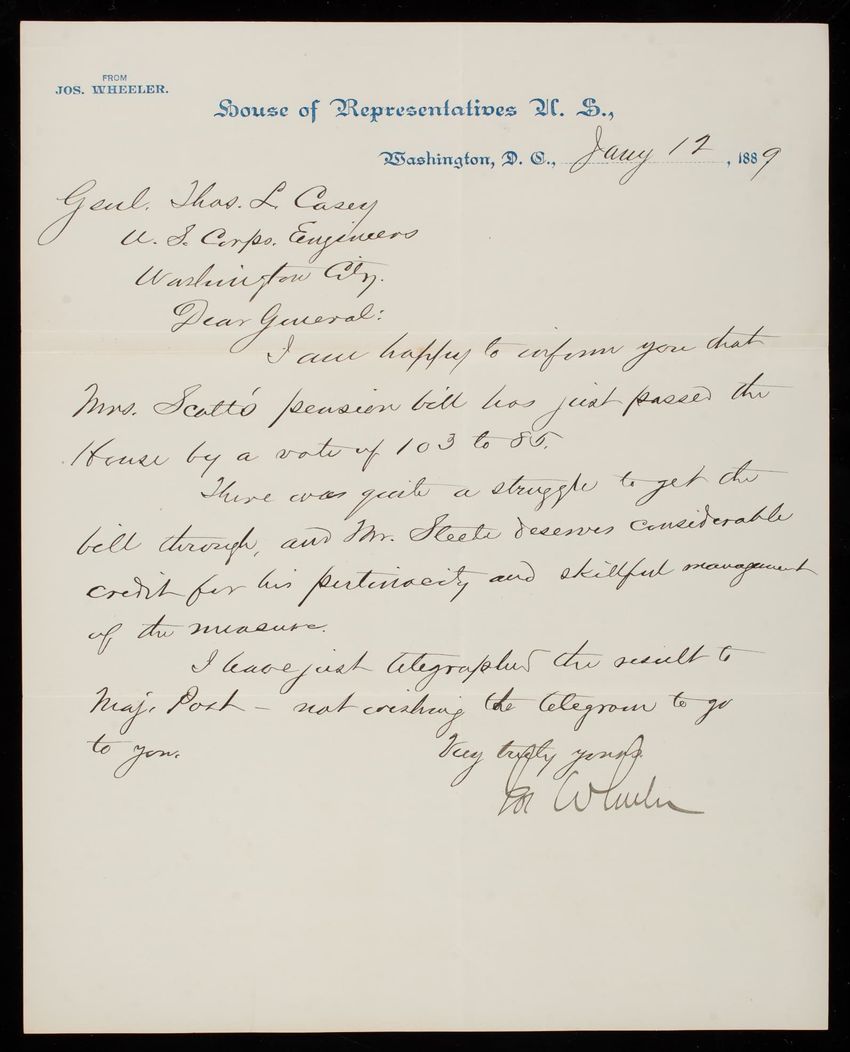 FROM
JOS. WHEELER.
House of Representatives U. S.,
Washington, D. C., Jany 12, 1889
Genl. Thos. L. Casey
U. S. Corps. Engineers
Washington City.
Dear General:
I am happy to inform you that
Mrs. Scott's pension bill has just passed the
House by a vote of 103 to 85.
There was quite a struggle to get the
bill through, and Mr. Steele deserves considerable
credit for his pertinacity and skillful management
of the measure.
I have just telegraphed the result to
Maj. Post – not wishing the telegram to go
to you.
Very truly yours
Jos Wheeler